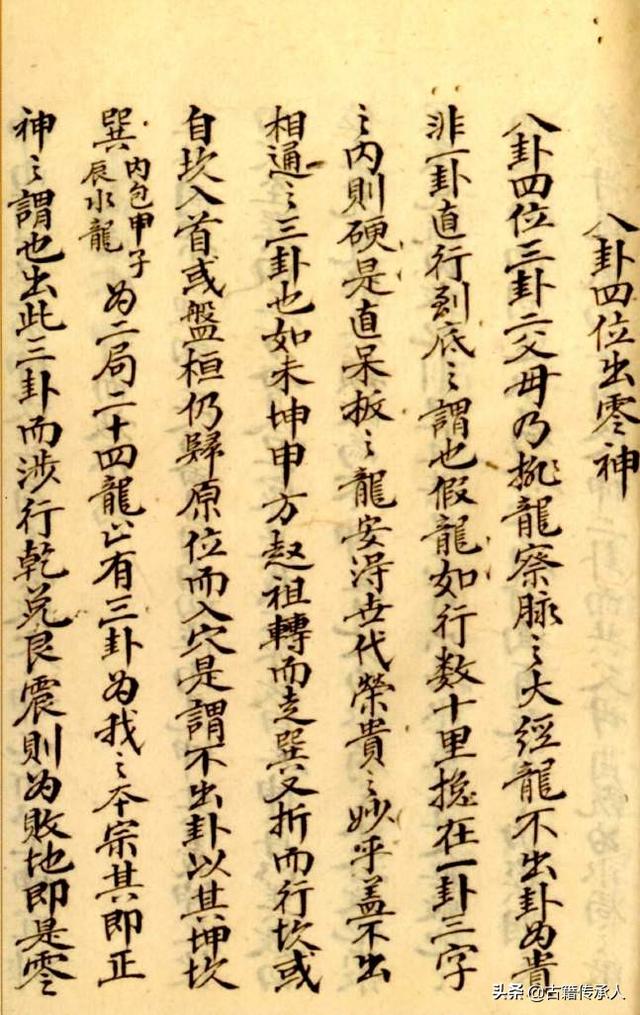 八卦四位出零神
八卦四位三卦二父母乃挨龍察脉之大經龍不出卦為貴
非一卦直行到底之謂也假龍如行数十里摠在一卦三字
之内則硬是直呆板之龍安得世代榮貴之妙乎盖不出
相通之三卦也如未坤申方起祖轉而走巽又折而行坎或
自坎入首或盤桓仍歸原位而入穴是謂不出卦以其坤坎
巽内包甲子辰水龍為二局二十四龍止有三卦為我之本宗其即正
神之謂也出此三卦而涉行乾兌艮震則为敗地即是零
头条 @古籍传承人